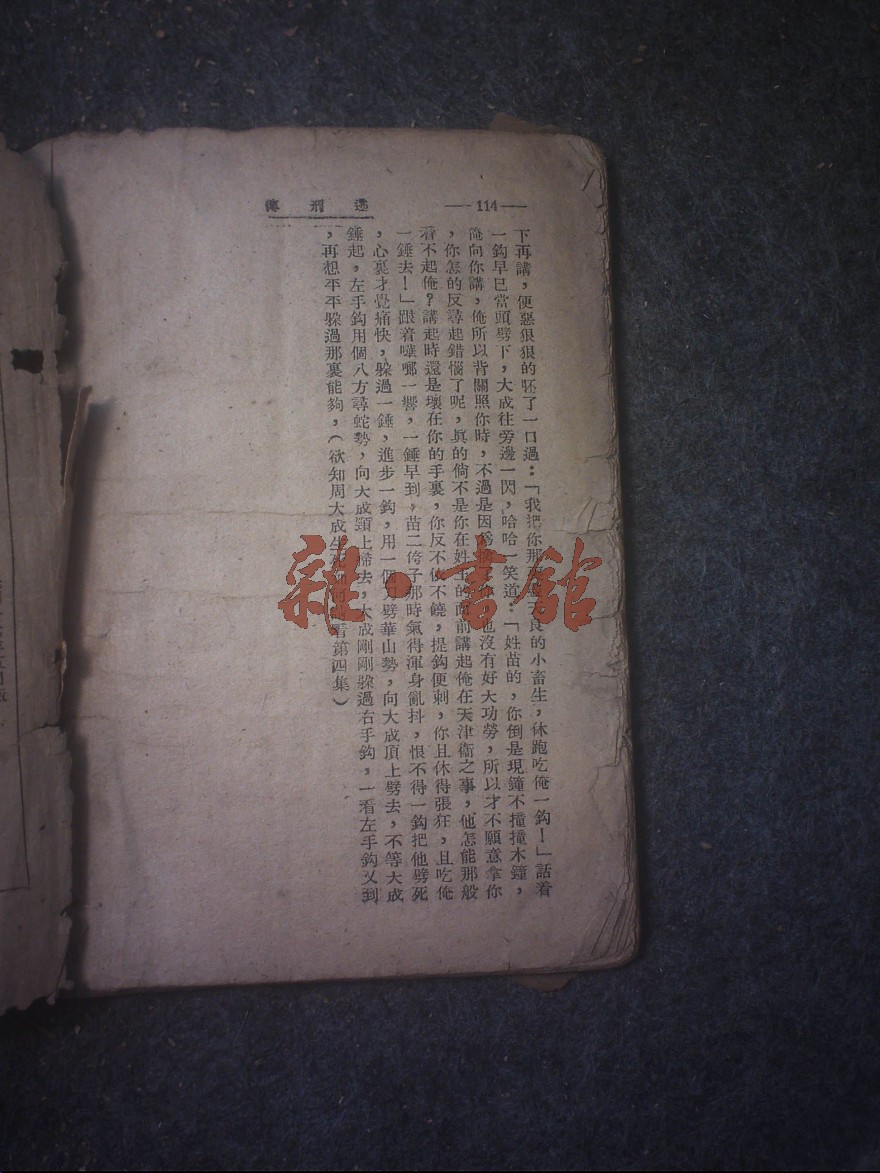 —114—
逃刑傳
下再講，便惡狠狠的呸了一口過：「我把你那 良的小畜生，休跑吃俺一鈎！」話着
一鈎早已當頭劈下，大成往旁邊一閃，哈哈一笑道：「姓苗的，你倒是現鐘不撞撞木鐘，
俺向你講，俺所以背關照你時，不過是因爲 也沒有好大功勞，所以才不願意拿你
，你怎的反尋起錯惱了呢，眞的倘不是你在姓王的面前講起俺在天津衞之事，他怎能那般
看不起俺？講起時還是壞在你的手裏，你反不依不饒，提鈎便刺，你且休得張狂，且吃俺
一錘去！」跟着嘩啷一響，一錘早到，苗二侉子那時氣得渾身亂抖，恨不得一鈎把他劈死
，心裏才覺痛快，躲過一錘，進步一鈎，用一個力劈華山勢，向大成頂上劈去，不等大成
錘起，左手鈎用個八方尋蛇勢，向大成頸上掃去，大成剛剛躲過右手鈎，一看左手鈎又到
，再想平平躲過那裏能夠，（欲知周大成生死如何 看第四集）
雜·書館